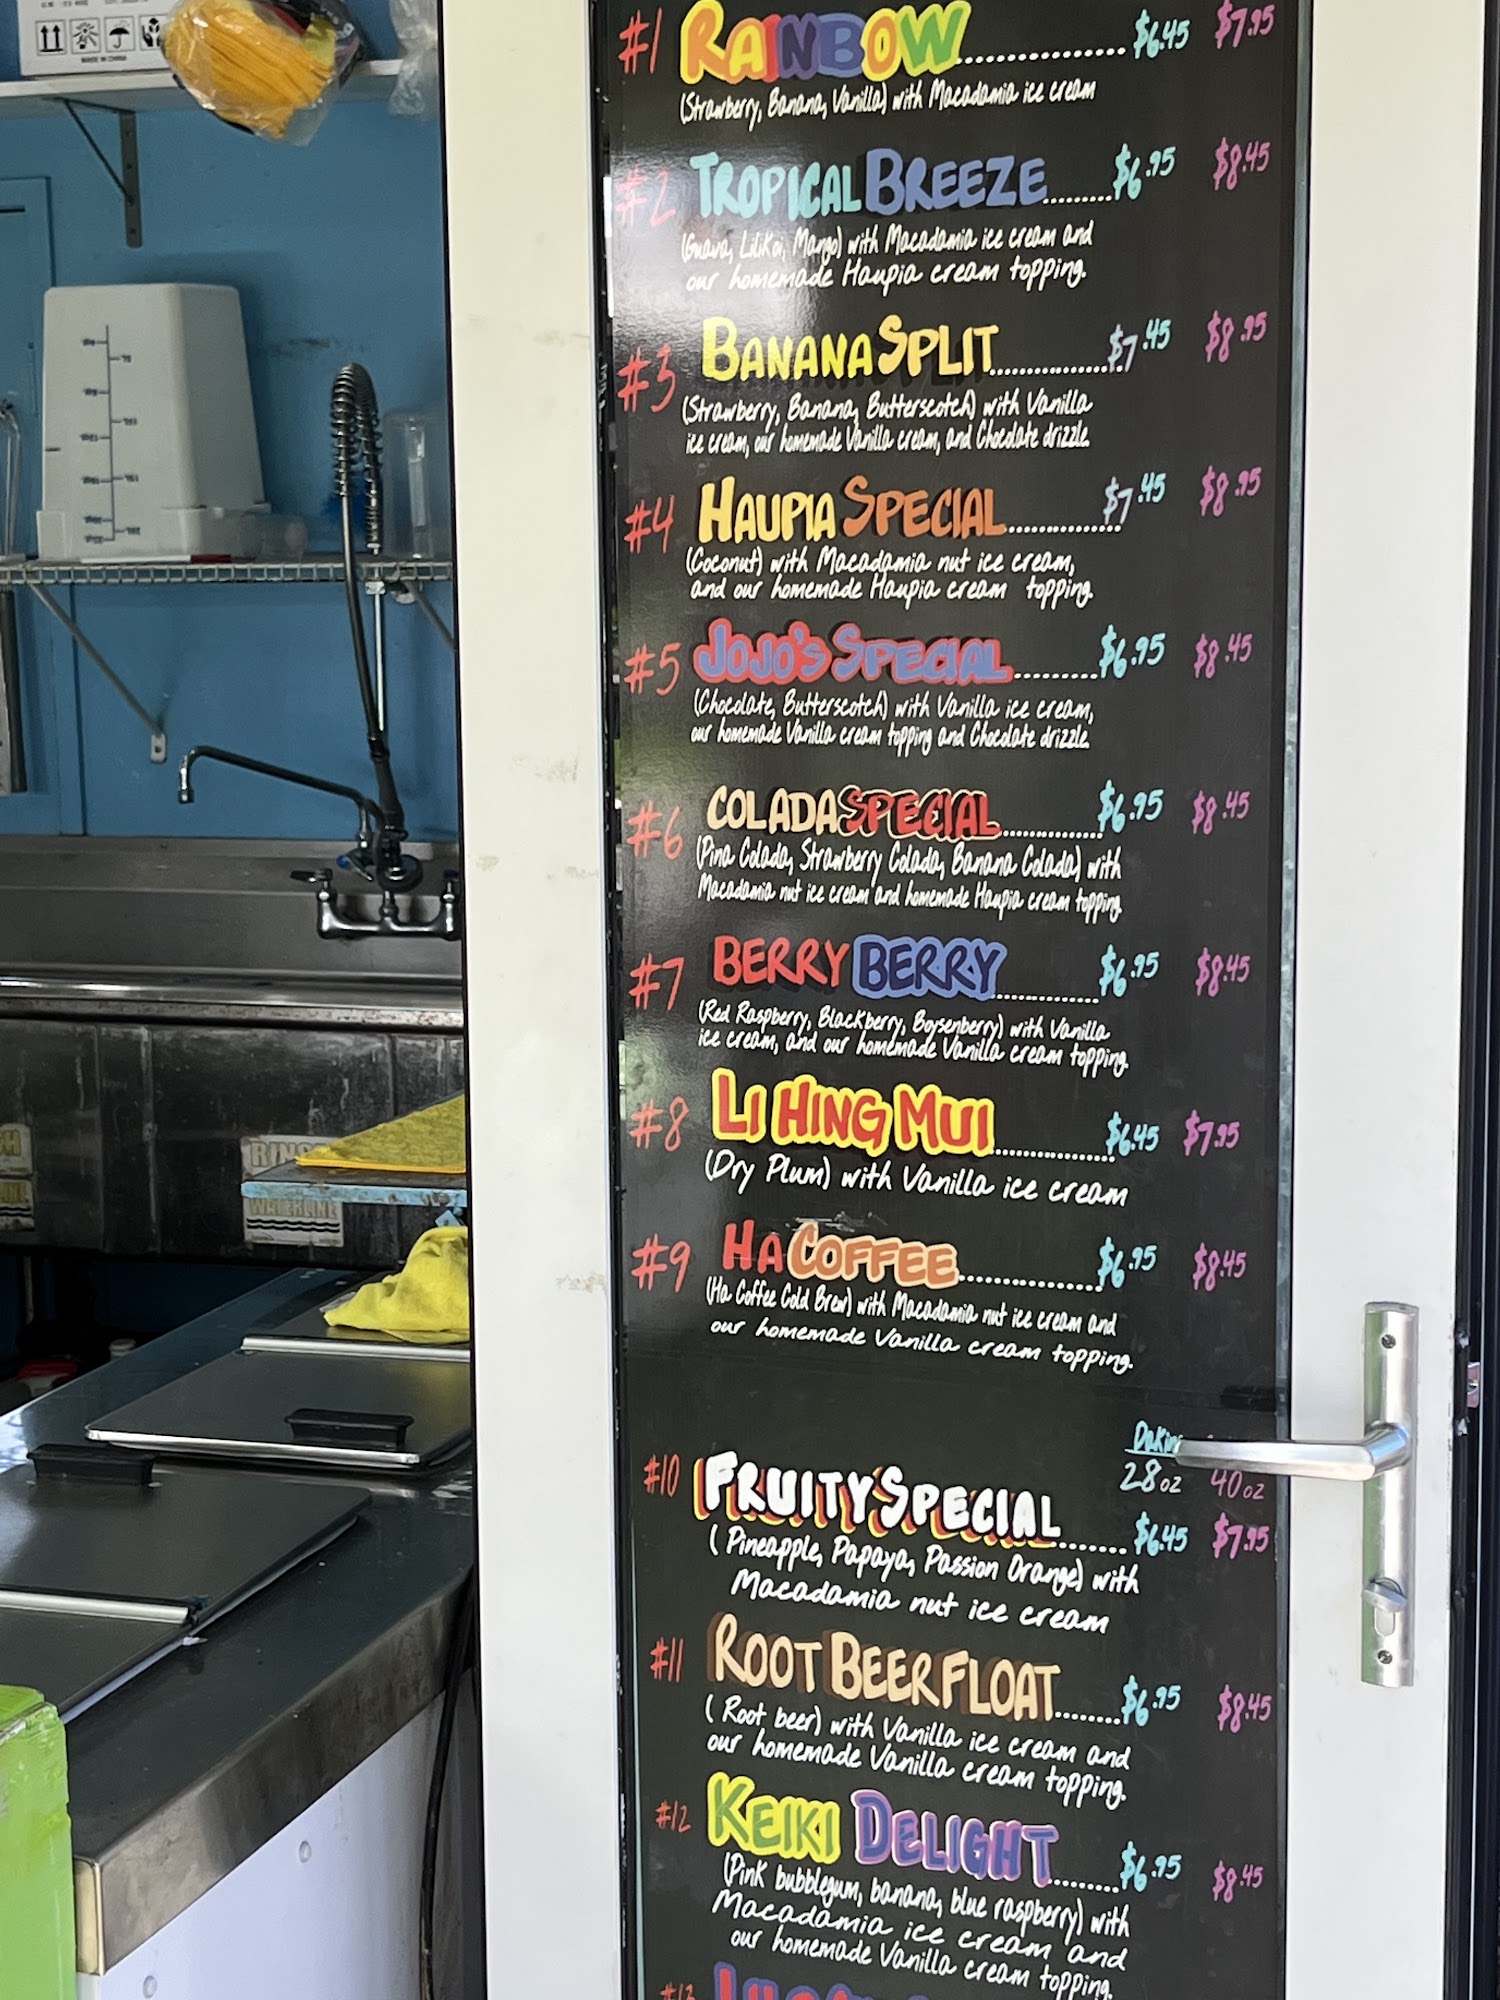 MADE IN CHINA
#1 RAINBOW.............. $6.45 $7.95
(Strawberry, Banana, Vanilla) with Macadamia ice cream
#2 TROPICAL BREEZE....... $6.95 $8.45
(Guava, Lilikoi, Mango) with Macadamia ice cream and
our homemade Haupia cream topping.
#3 BANANA SPLIT.............. $7.45 $8.95
(Strawberry, Banana, Butterscotch) with Vanilla
ice cream, our homemade Vanilla cream, and Chocolate drizzle.
#4 HAUPIA SPECIAL............ $7.45 $8.95
(Coconut) with Macadamia nut ice cream,
and our homemade Haupia cream topping.
#5 JOJO'S SPECIAL......... $6.95 $8.45
(Chocolate, Butterscotch) with Vanilla ice cream,
our homemade Vanilla cream topping and Chocolate drizzle.
#6 COLADA SPECIAL........... $6.95 $8.45
(Pina Colada, Strawberry Colada, Banana Colada) with
Macadamia nut ice cream and homemade Haupia cream topping.
#7 BERRY BERRY............ $6.95 $8.45
(Red Raspberry, Blackberry, Boysenberry) with Vanilla
ice cream, and our homemade Vanilla cream topping.
#8 LI HING MUI............. $6.45 $7.95
(Dry Plum) with Vanilla ice cream
#9 HA COFFEE............... $6.95 $8.45
(Ha Coffee Cold Brew) with Macadamia nut ice cream and
our homemade Vanilla cream topping.
28oz 40oz
#10 FRUITY SPECIAL....... $6.45 $7.95
( Pineapple, Papaya, Passion Orange) with
Macadamia nut ice cream
#11 ROOT BEER FLOAT....... $6.95 $8.45
( Root beer) with Vanilla ice cream and
our homemade Vanilla cream topping.
#12 KEIKI DELIGHT....... $6.95 $8.45
(Pink bubblegum, banana, blue raspberry) with
Macadamia ice cream and
our homemade Vanilla cream topping.
#13
WATERLINE